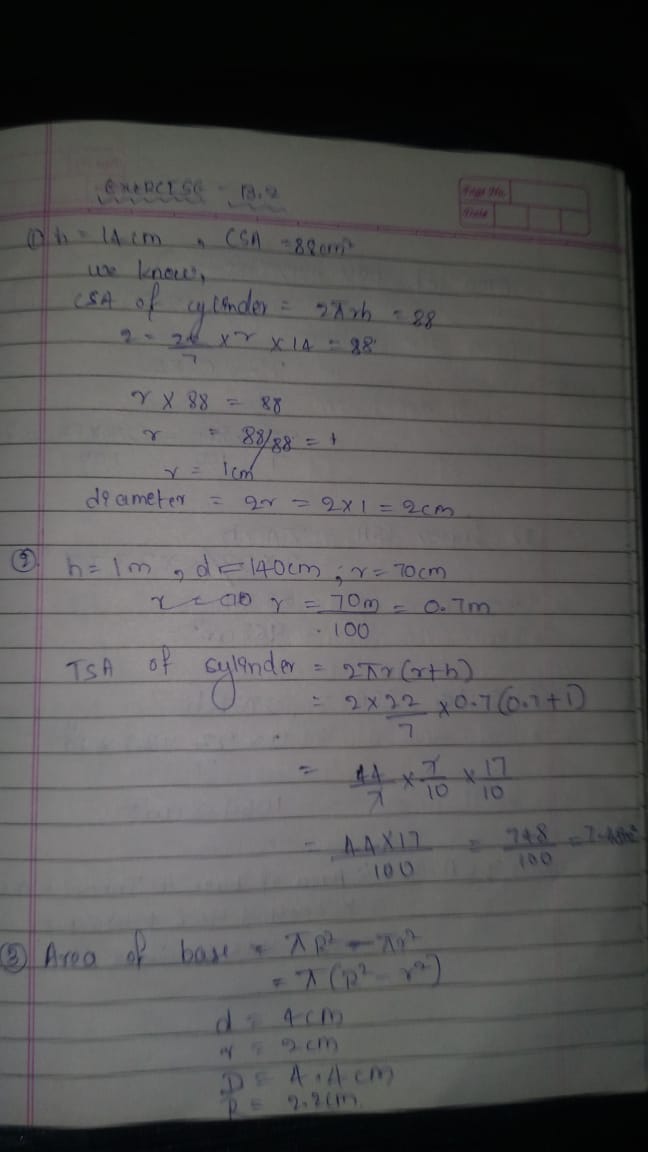 EXERCISE - 13.2
Page No.
Date
(1) h = 14 cm , CSA = 88cm²
we know,
CSA of cylinder = 2πrh = 88
2 × 22/7 × r × 14 = 88
r × 88 = 88
r = 88/88 = 1
r = 1cm
diameter = 2r = 2×1 = 2cm
(2) h = 1m , d = 140cm ; r = 70cm
r = 70m/100 = 0.7m
TSA of cylinder = 2πr(r+h)
= 2×22/7 × 0.7(0.7+1)
= 44/7 × 7/10 × 17/10
= 44×17/100 = 748/100 = 7.48m²
(3) Area of base = πR² - πr²
= π(R² - r²)
d = 4cm
r = 2cm
D = 4.4cm
R = 2.2cm.